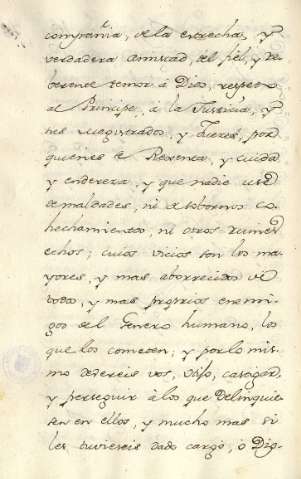 compañia, de la estrecha, y
verdadera amistad, del fiel, y re-
verente temor à Dios, respeto
al Principe, à la Justicia, y
sus magistrados, y Jueces, por
quienes se Reserva, y cuida
y endereza, y que nadie use
de maldades, ni de sobornos co-
hechamientos, ni otros ruines
echos; cuios vicios son los ma-
yores, y mas aborrecidos de
todos, y mas proprios enemi-
gos del Genero humano, los
que los cometen; y por lo mis-
mo devereis vos, Dsso, castigar,
y perseguir à los que Delinquie-
sen en ellos, y mucho mas si
les tuviereis dado cargo, ò Dig-